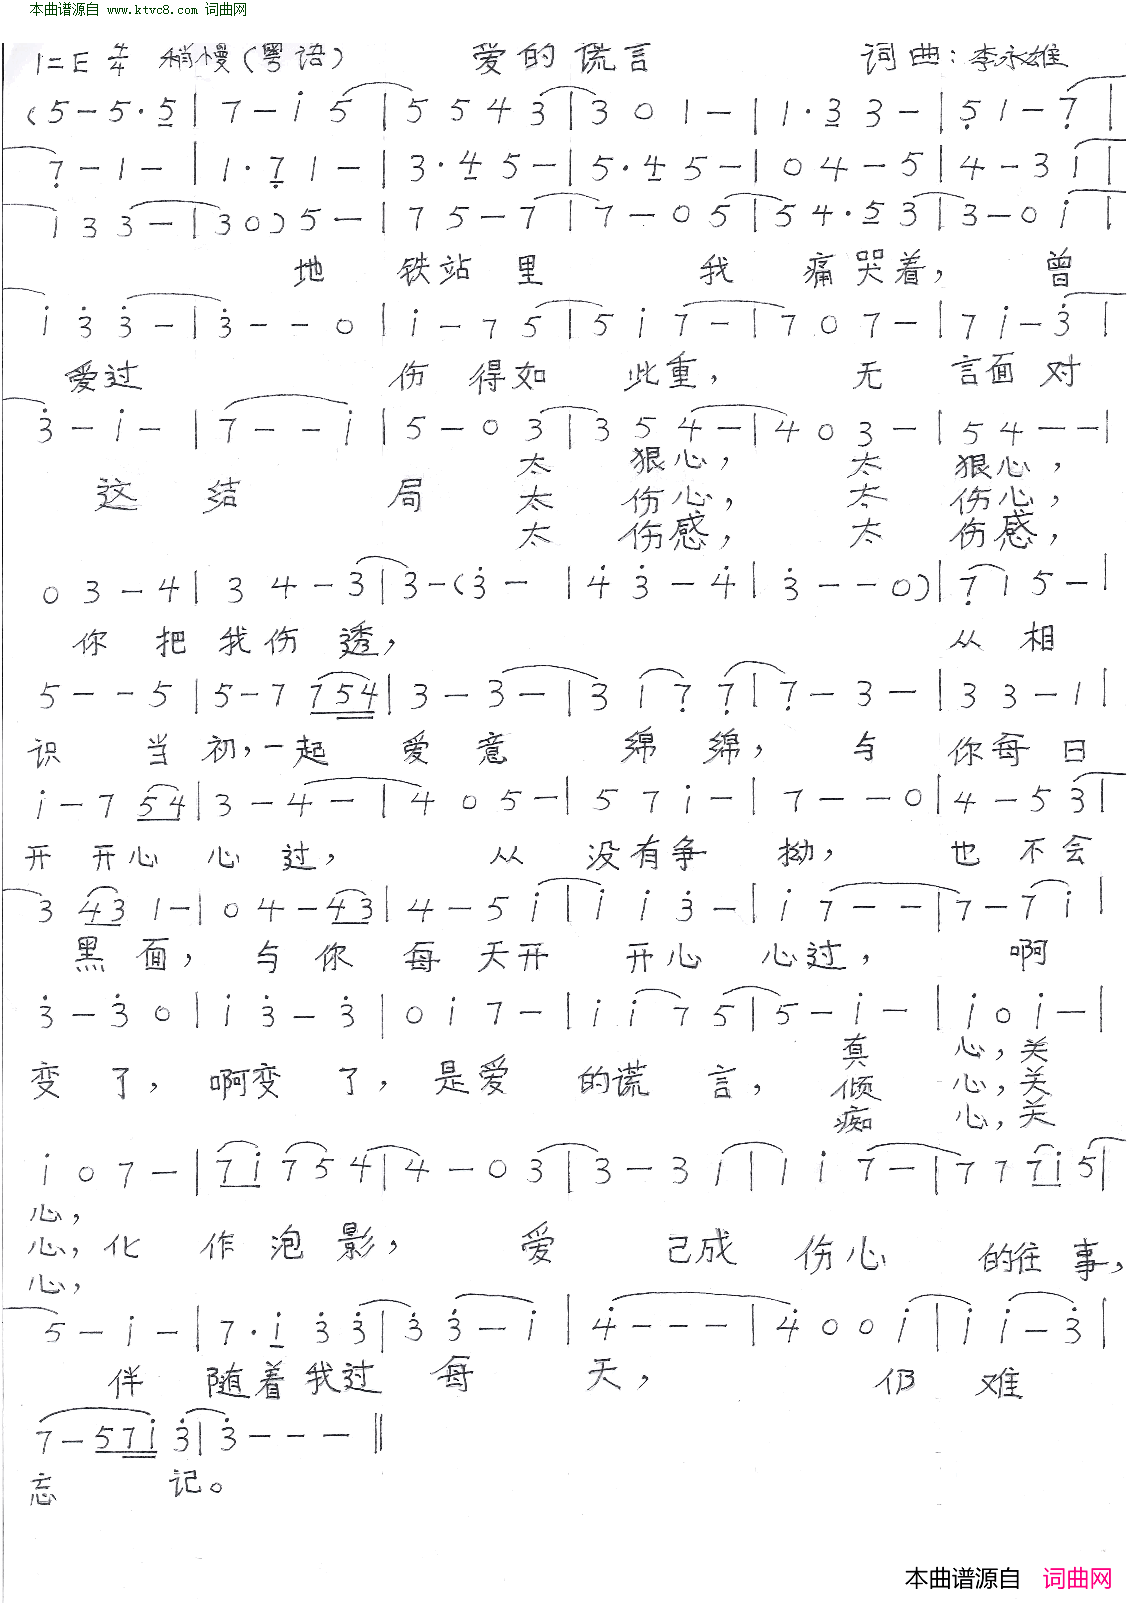 本曲谱源自 www.ktvc8.com 词曲网
1=E 4/4 稍慢(粤语) 爱的谎言 词曲:李永雄
(5-5·5|7-i5|5543|301-|1·33-|51-7|
7-1-|1·71-|3·45-|5·45-|04-5|4-3i|
i33-|30)5-|75-7|7-05|54·53|3-0i|
地 铁站里 我 痛哭着, 曾
i33-|3--0|i-75|5i7-|707-|7i-3|
爱过 伤 得如 此重, 无 言面对
3-i-|7--i|5-03|354-|403-|54--|
太 狠心, 太 狠心,
这 结 局 太 伤心, 太 伤心,
太 伤感, 太 伤感,
03-4|34-3|3-(3-|43-4|3--0)|715-|
你 把我伤 透, 从相
5--5|5-7754|3-3-|3177|7-3-|33-1|
识 当初,一起 爱意 绵绵, 与 你每日
i-754|3-4-|405-|57i-|7--0|4-53|
开 开心 心 过, 从 没有争 拗, 也 不会
3431-|04-43|4-5i|ii3-|i7--|7-7i|
黑 面, 与你 每天开 开心 心过, 啊
3-30|i3-3|0i7-|ii75|5-i-|i0i-|
真 心,关
变 了, 啊变 了, 是爱 的谎 言, 倾 心,关
痴 心,关
i07-|7i754|4-03|3-3i|1i7-|777i5|
心,
心,化 作 泡 影, 爱 已成 伤心 的往事,
心,
5-i-|7·i33|33-i|4---|400i|ii-3|
伴 随着我过 每 天, 仍 难
7-57i3|3---‖
忘 记。
本曲谱源自 词曲网